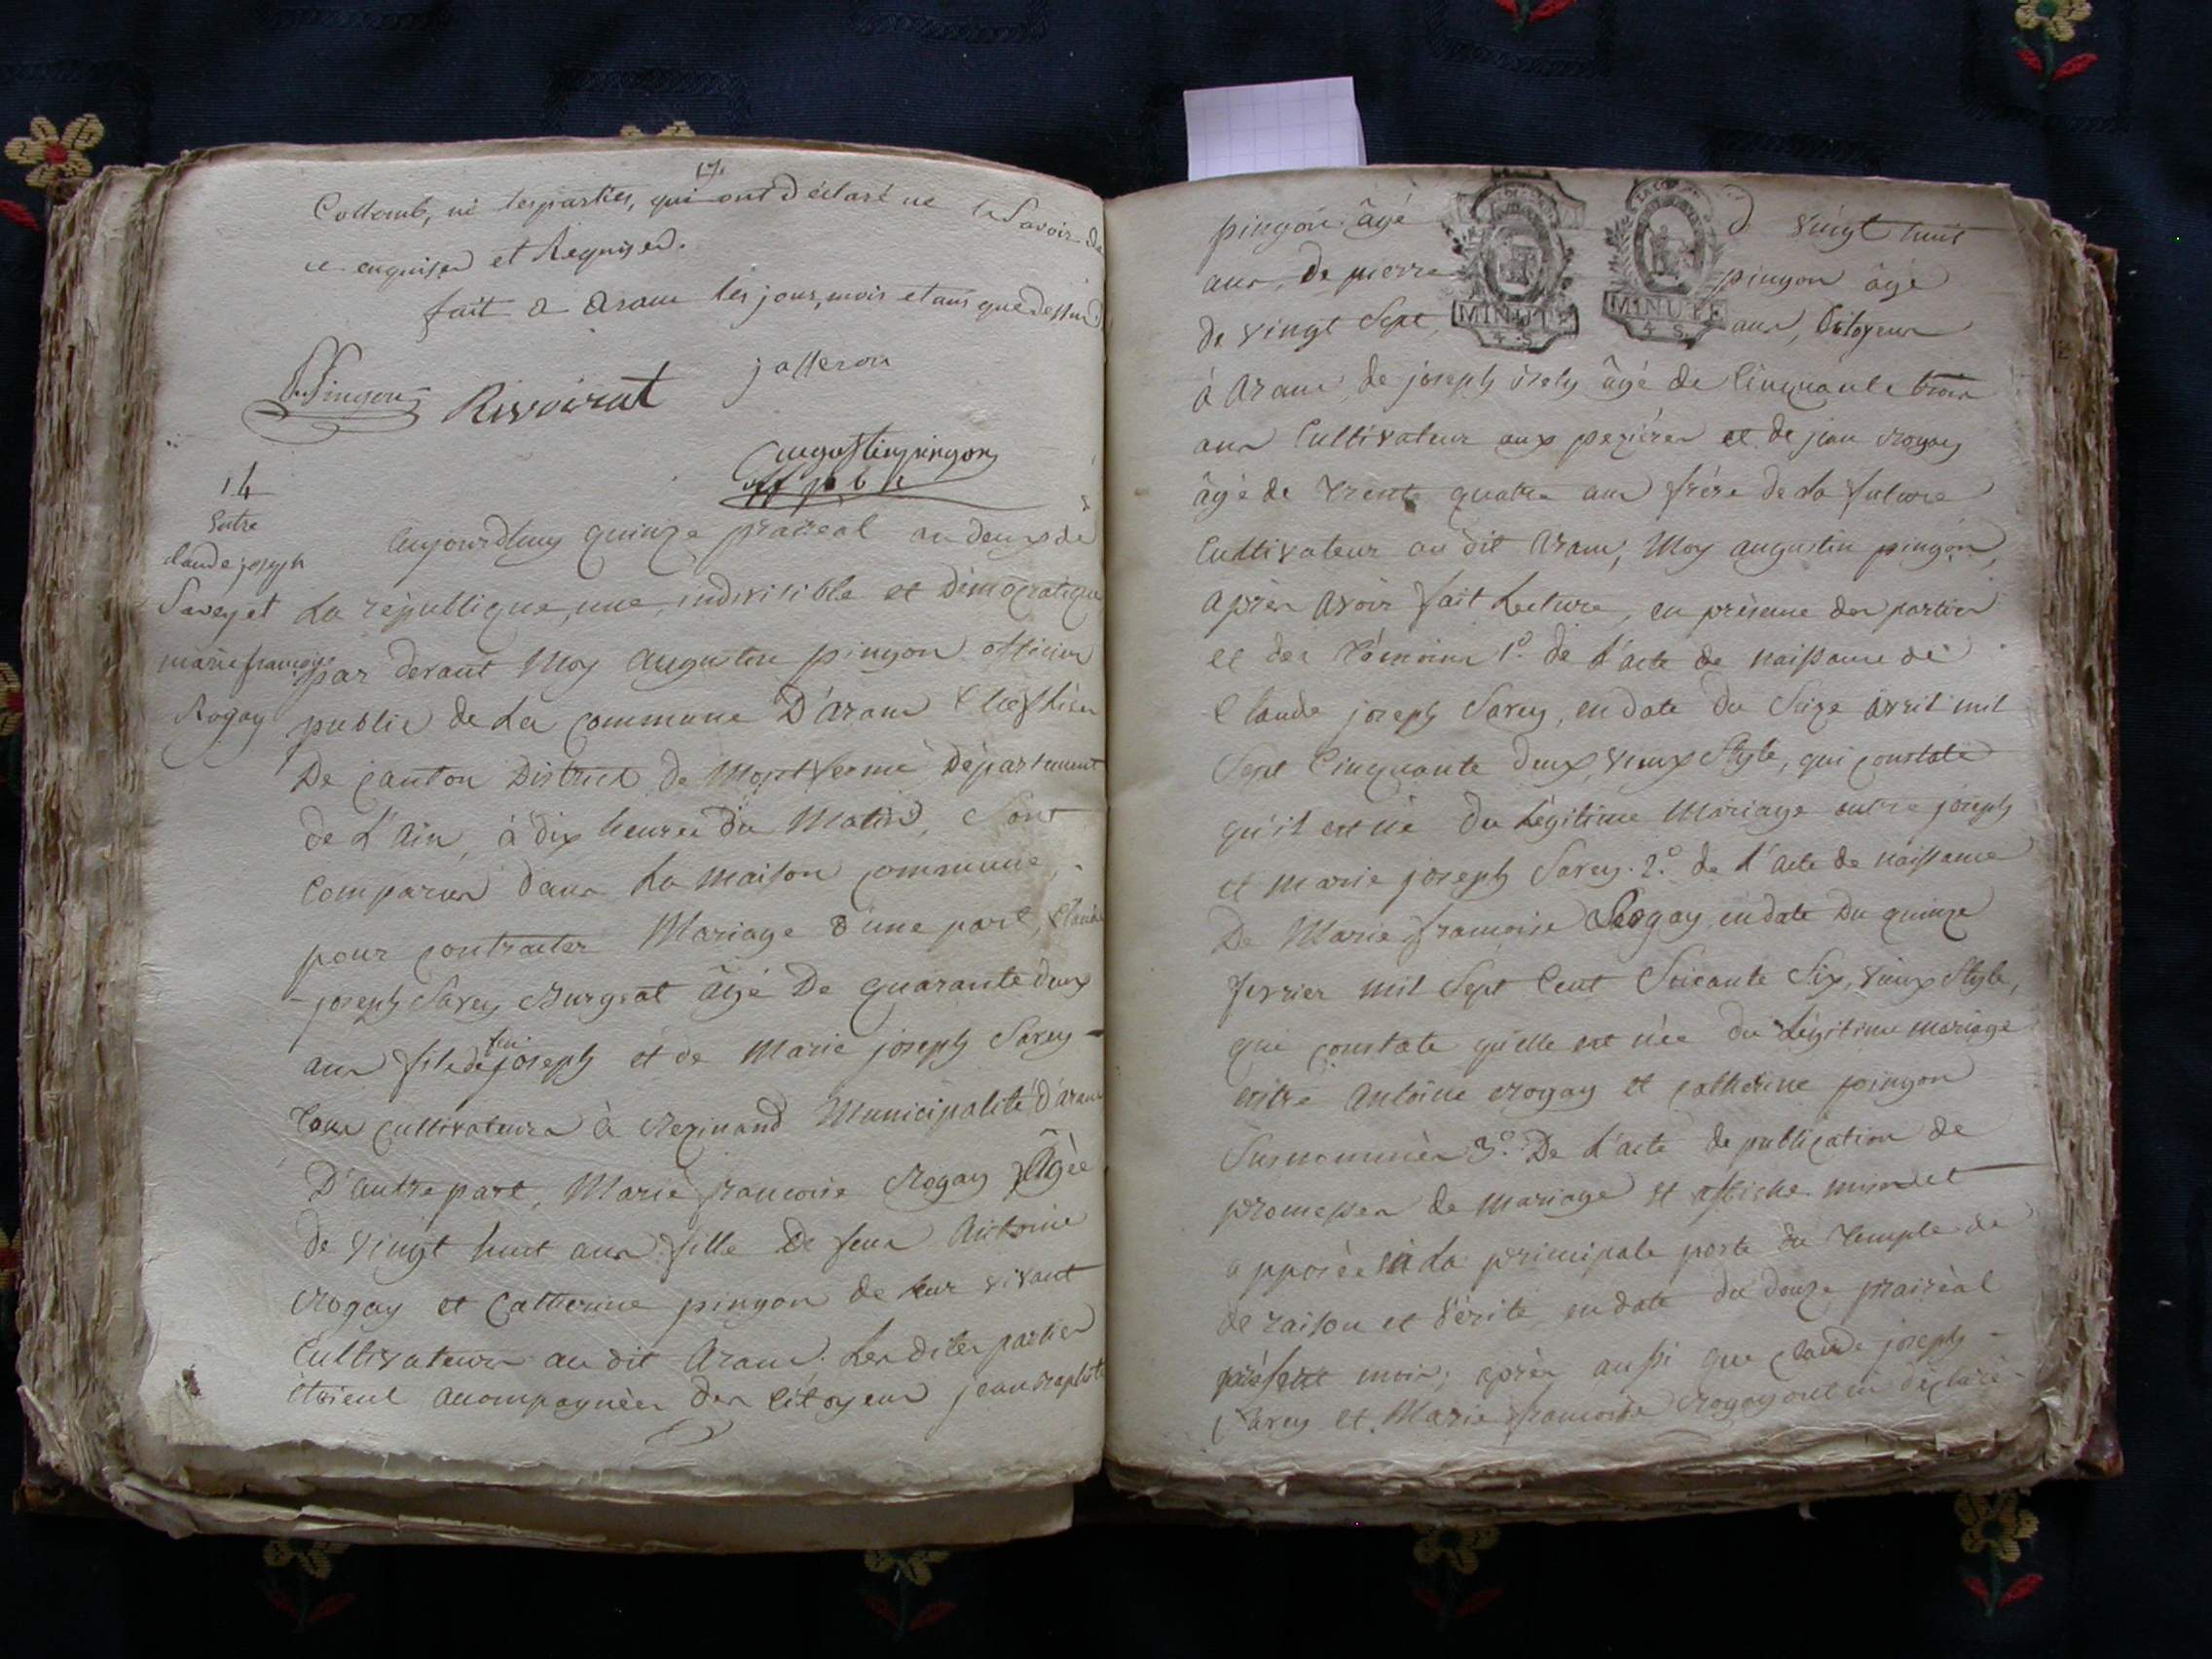 17.
Collomb, ni lesparties, qui ont déclaré ne le Savoir de
ce enquiser et Requiser.
fait a aranc les jour, mois et ans que dessus
Pingon Rivoirat jasseron
augustin pingon
off pblic
14
Entre
claude joseph
Savey et
marie françoise
Rogay
aujourdhuy quinze prairéal an deuxdé
La république, une, indivisible et démocratique
par devant Moy augustin pingon officier
public de La commune D'aranc Cheflieu
De canton District de Montferme département
de L'ain, à dix heures du matin, Sont
Comparus dans La maison commune,
pour contracter Mariage d'une part, Claude
joseph Savey Burgeat âgé De quarante deux
ans fils de feu joseph et de Marie joseph Savey
tous cultivateurs à Rezinand Municipalité d'aranc
D'autre part, Marie françoise Rogay Agée
de vingt huit ans fille De feus Antoine
Rogay et Catherine pingon de leur vivant
Cultivateurs au dit Aranc. Les dites parties
étoient accompagnées des Citoyens jean baptiste
pingon âgé de vingt huit
ans, de pierre pingon âgé
de vingt Sept ans, Citoyens
MINUTE
4 S.
MINUTE
4 S.
à Aranc, de joseph âgé de Cinquante trois
ans Cultivateur aux pezières et de jean Rogay
âgé de trente quatre ans frère de La future
Cultivateur au dit aranc; Moy augustin pingon,
après avoir fait Lecture, en présence des parties
et des témoins 1.º de L'acte de naissance de
Claude joseph Savey, en date du Seize avril mil
Sept Cinquante deux, vieux Style, qui constate
qu'il est né du Légitime Mariage entre joseph
et marie joseph Savey. 2.º de L'acte de naissance
De Marie françoise Rogay en date Du quinze
fevrier mil Sept Cent Soixante Six, vieux Style,
qui constate qu'elle est née du Légitime mariage
entre Antoine Rogay et Catherine pingon
Surnommés 3.º De L'acte de publication de
promesses de mariage et affiche mise et
apposée à La principale porte du Temple de
de raison et vérité, en date du douze prairéal
présent mois; après aussi que claude joseph
Savey et Marie françoise Rogay ont eu déclaré